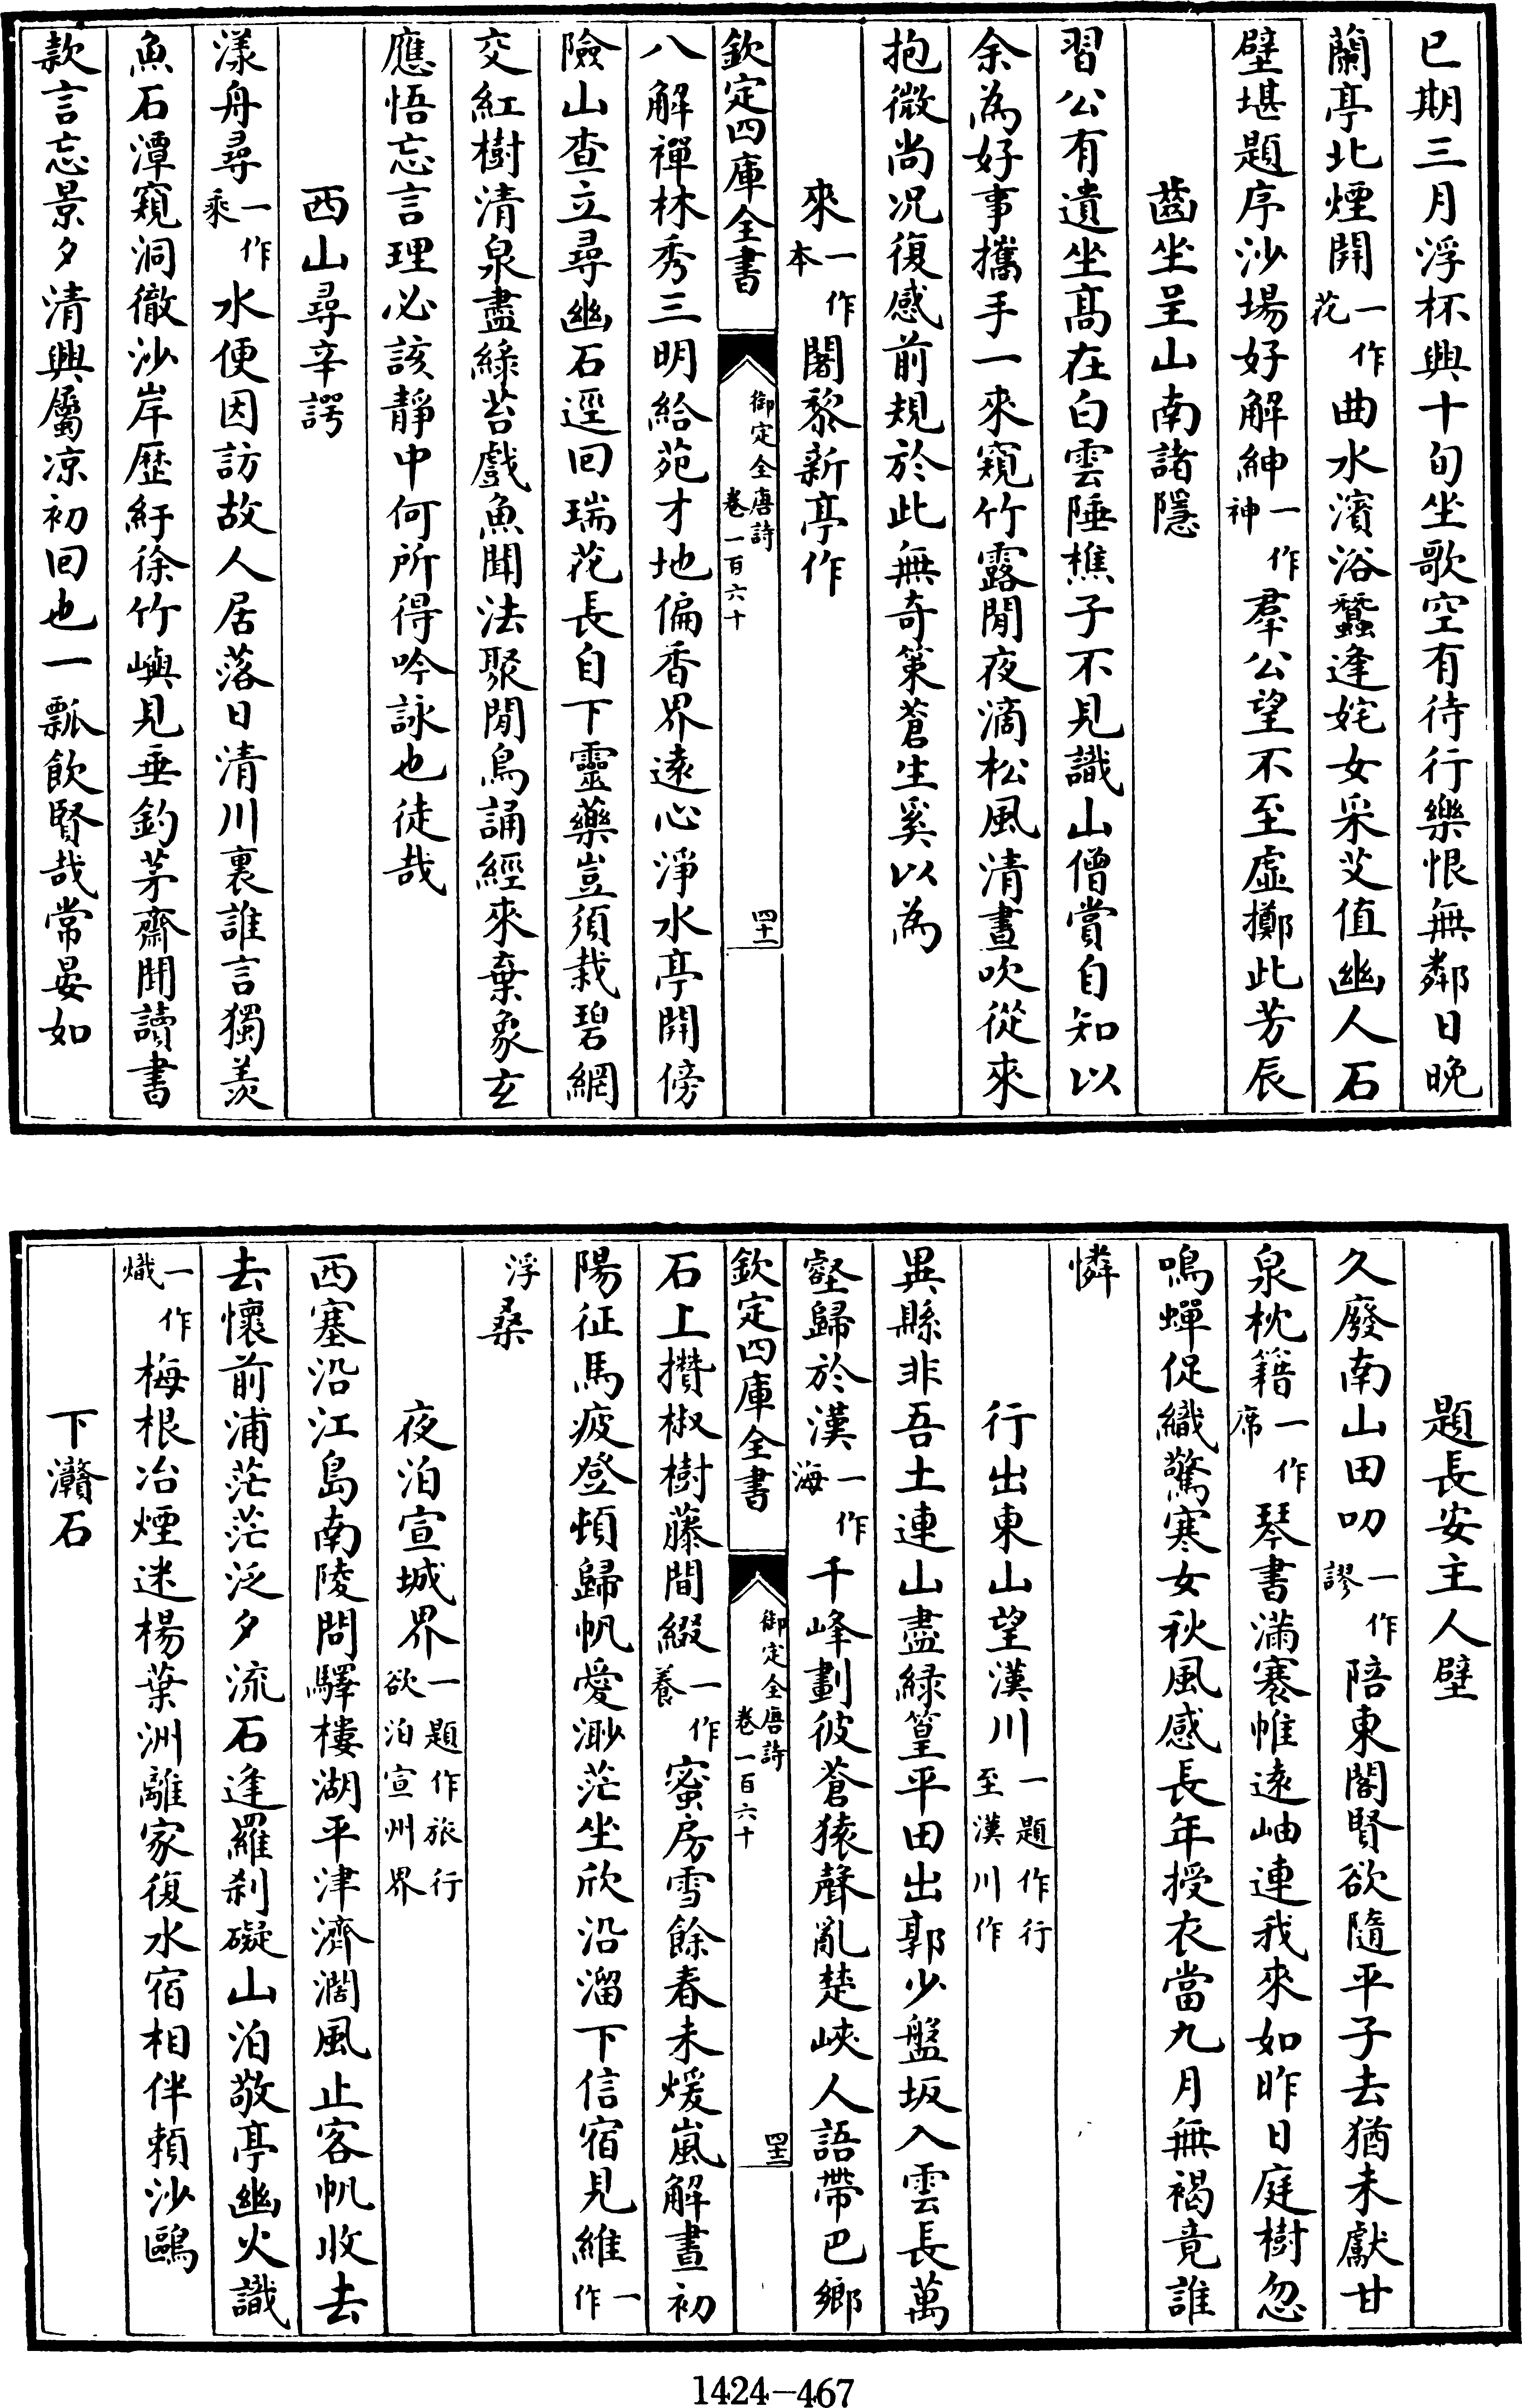 已期三月浮杯興十旬坐歌空有待行樂恨無鄰日晚
蘭亭北煙開一作花曲水濱浴蠶逢姹女采艾值幽人石
壁堪題序沙場好解紳一作神羣公望不至虛擲此芳辰
齒坐呈山南諸隱
習公有遺坐髙在白雲陲樵子不見識山僧賞自知以
余為好事攜手一來窺竹露閒夜滴松風清晝吹從來
抱微尚况復感前規於此無奇策蒼生奚以為
來一作本闍黎新亭作
欽定四庫全書
御定全唐詩
卷一百六十
四十一
八解禪林秀三明給苑才地偏香界逺心淨水亭開傍
險山查立尋幽石逕回瑞花長自下靈藥豈須栽碧網
交紅樹清泉盡綠苔戲魚聞法聚閒鳥誦經來棄象玄
應悟忘言理必該靜中何所得吟詠也徒哉
西山尋辛諤
漾舟尋一作乘水便因訪故人居落日清川裏誰言獨羡
魚石潭窺洞徹沙岸歷紆徐竹嶼見垂釣茅齋聞讀書
款言忘景夕清興屬凉初回也一瓢飲賢哉常晏如
題長安主人壁
久廢南山田叨一作謬陪東閣賢欲隨平子去猶未獻甘
泉枕籍一作席琴書滿褰帷逺岫連我來如昨日庭樹忽
鳴蟬促織驚寒女秋風感長年授衣當九月無褐竟誰
憐
行出東山望漢川一題作行至漢川作
異縣非吾土連山盡緑篁平田出郭少盤坂入雲長萬
壑歸於漢一作海千峰劃彼蒼猿聲亂楚峽人語帶巴鄉
欽定四庫全書
御定全唐詩
卷一百六十
四十二
石上攢椒樹藤間綴一作養蜜房雪餘春未煖嵐解晝初
陽征馬疲登頓歸帆愛渺茫坐欣沿溜下信宿見維一作
浮桑
夜泊宣城界一題作旅行欲泊宣州界
西塞沿江島南陵問驛樓湖平津濟濶風止客帆收去
去懷前浦茫茫泛夕流石逢羅刹礙山泊敬亭幽火識
一作熾梅根冶煙迷楊葉洲離家復水宿相伴頼沙鷗
下灨石
1424-467